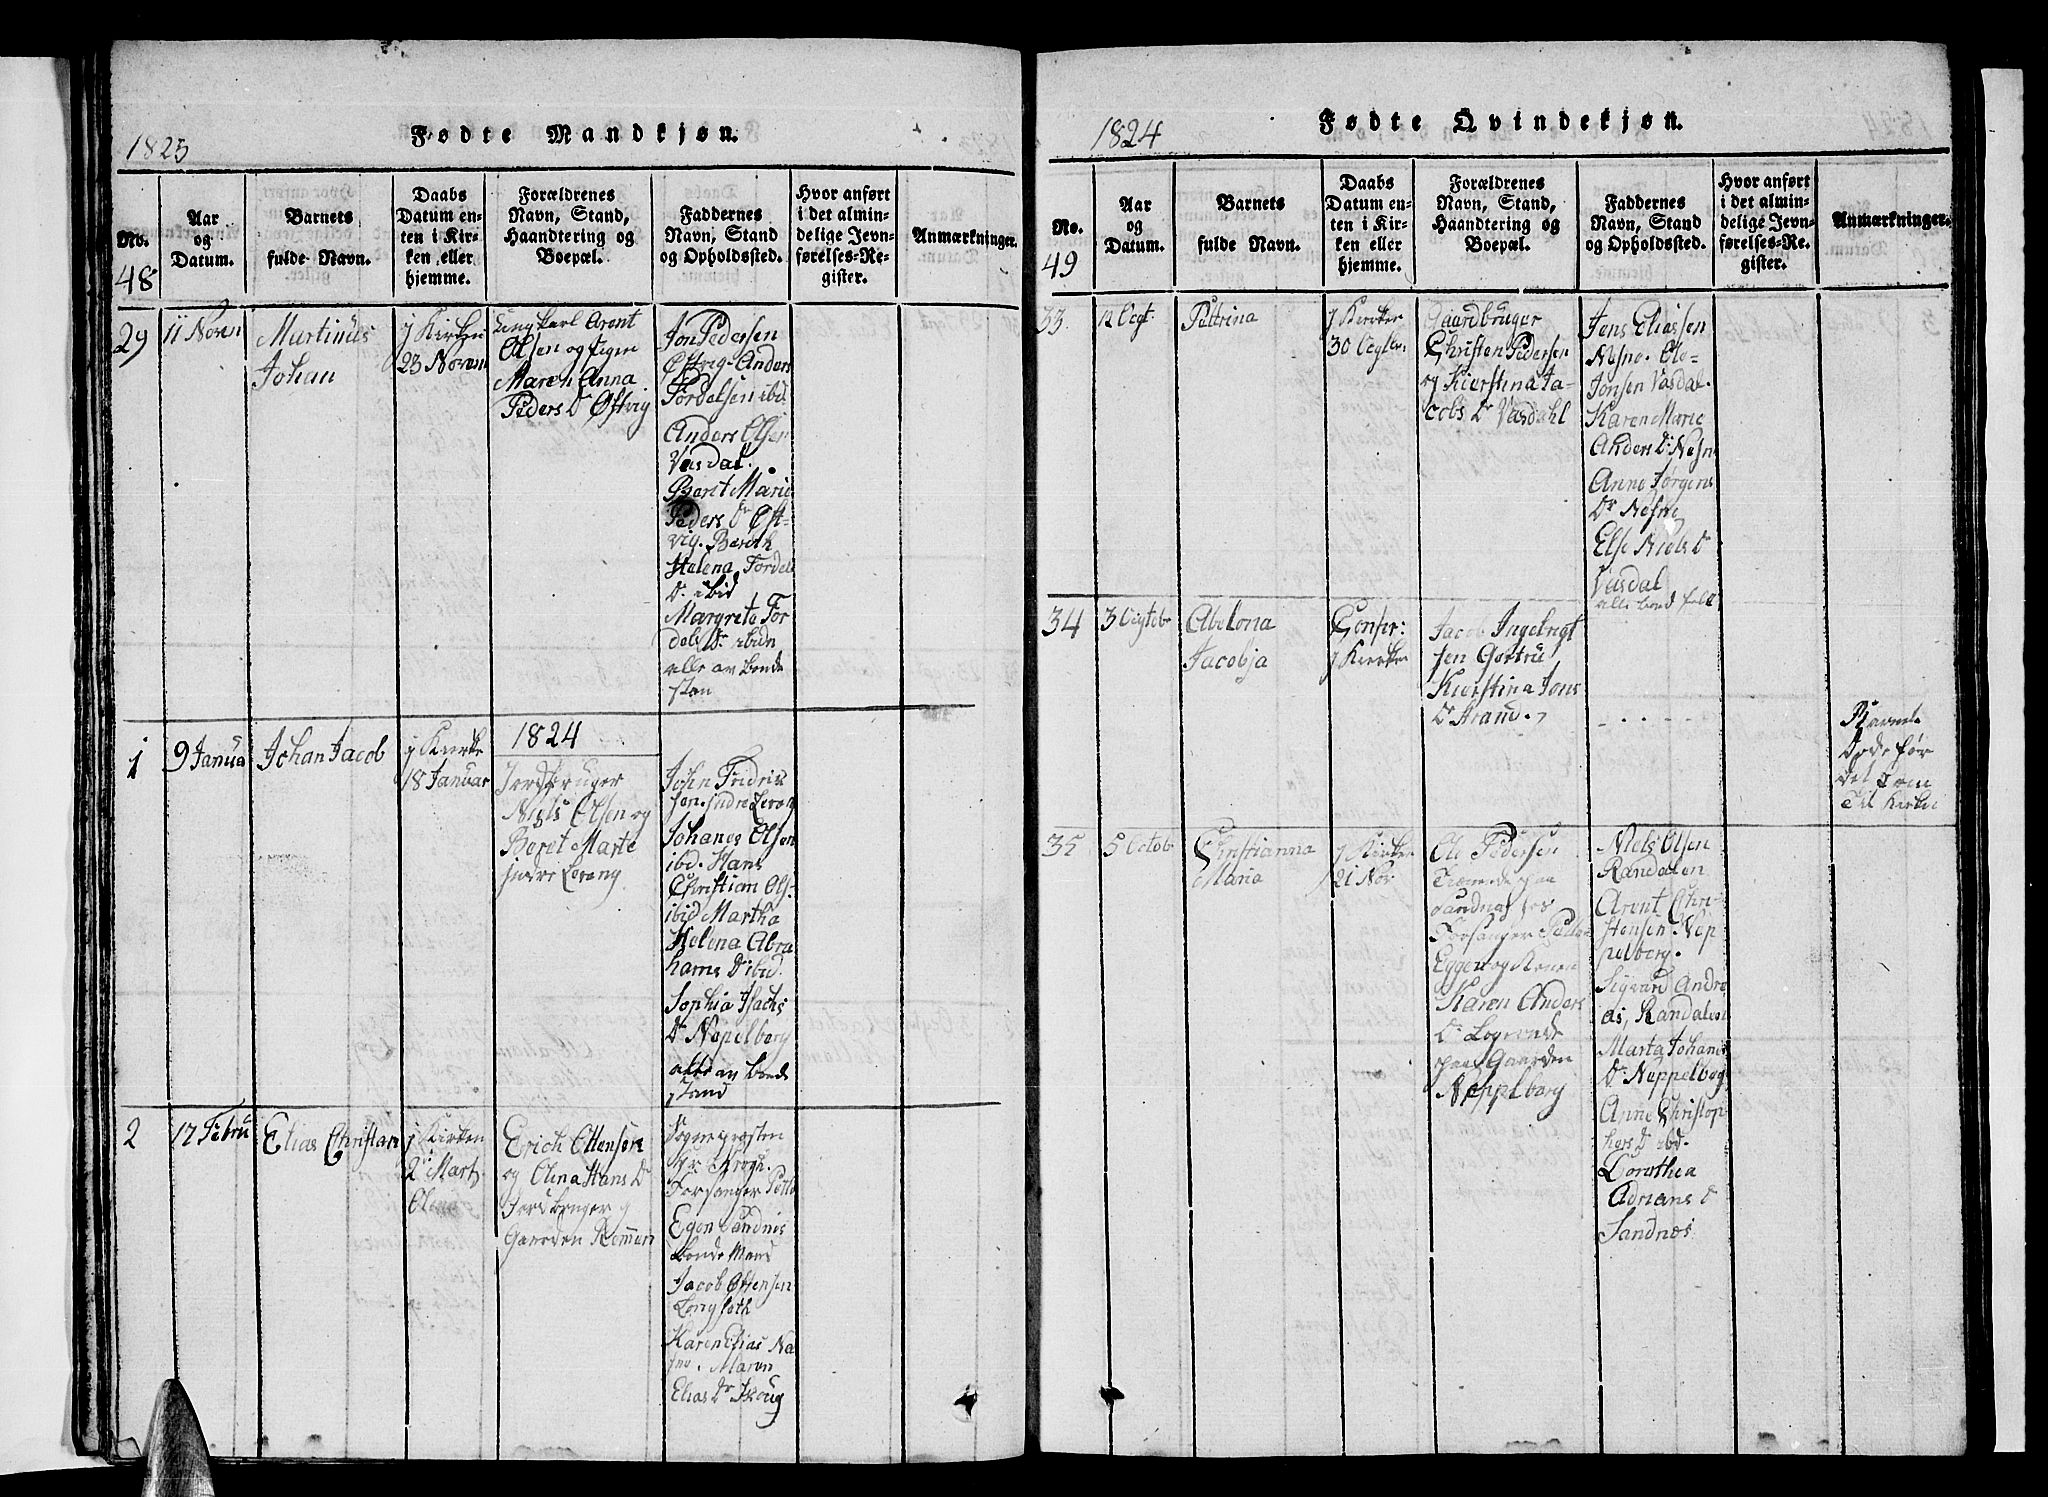 1823
Fødte Mandkjøn.
No.
48
Aar
og
Datum.
Barnets
fulde Navn.
Daabs
Datum en-
ten i Kir-
ken eller
hjemme.
Forældrenes
Navn, Stand,
Haandtering og
Boepæl.
Faddernes
Navn, Stand
og Opholdssted.
Hvor anført
i det almin-
delige Jevn-
førelses-Re-
gister.
Anmærkninger.
29
11 Noven
Martinus
Johan
j Kirken
23 Novem
Ungkarl Arent
Olsen og Pigen
Maren Anna
Peders Dr Østvig
Jon Pedersen
Østvig. Anders
Tordelsen ibid
Anders Olsen
Vasdal.
Beret Marie
Peders Dr Øst-
vig. Bereth
Helena Tordels
Dr ibid
Margrete Tor
dels Dr ibidn
alle av bonde
stan
1824
1
9 Janua
Johan Jacob
j Kirke
18 Januar
Jordbruger
Niels Olsen og
Beret Marte
indre Lerong
John Fridrik
sen. indre Lerong
Johanes Olsen
ibd. Hans
Christian Ols-
ibid Martha
Helena Abra
hams Dr ibid.
Sophia Isachs
Dr Nepelberg
alle av bonde
stand
2
17 Febru
Elias Christian
j Kirken
2 Marts
Erich Ottensen
og Olina Hans Dr
Jordbruger
Gaarden Remmen
Sognepresten
Hr Krogh.
Forsanger Peder
Egen Sandnis
bonde Mand
Jacob Ottensen
Longseth
Karen Elias Ne
sne. Maren
Elias Dr Skoug
1824
Fødte Qvindekjøn.
No.
49
Aar
og
Datum.
Barnets
fulde Navn.
Daabs
Datum en-
ten i Kir-
ken eller
hjemme.
Forældrenes
Navn, Stand,
Haandtering og
Boepæl.
Faddernes
Navn, Stand
og Opholdssted.
Hvor anført
i det almin-
delige Jevn-
førelses-Re-
gister.
Anmærkninger.
33
Petrina
j Kirken
30
Gaardbruger
Christen Pedersen
og Kierstina Ja-
cobs Dr Vasdahl
Jens Eliassen
Nesne. Ole
Jonsen Vasdal.
Karen Marie
Anders Dr Nesn
Anne Jørgens
Dr Nesne
Else Niels Dr
Vasdal
alle bond folk
34
Abelona
Jacobja
j Kirken
Jacob Ingebrigt
sen
Kierstina Jons
Dr Strand.
Barnet
Døde før
det kom
Til Kirken
35
5 Octob
Christianna
Maria
j Kirken
21 Nov
Ole Pedersen
Tienende paa
Sandnes hos
Forsanger Peder
Eggen og Konen
Karen Anders
Dr Logerende
paa Gaarden
Neppelberg
Niels Olsen
Randalen
Arent Chri-
stensen Nep-
pelberg.
Sigvard Andre
as, Randalen
Marta Johanes
Dr Neppelberg
Anne Christop
hers Dr ibd.
Dorothea
Adrians Dr
Sandnæs